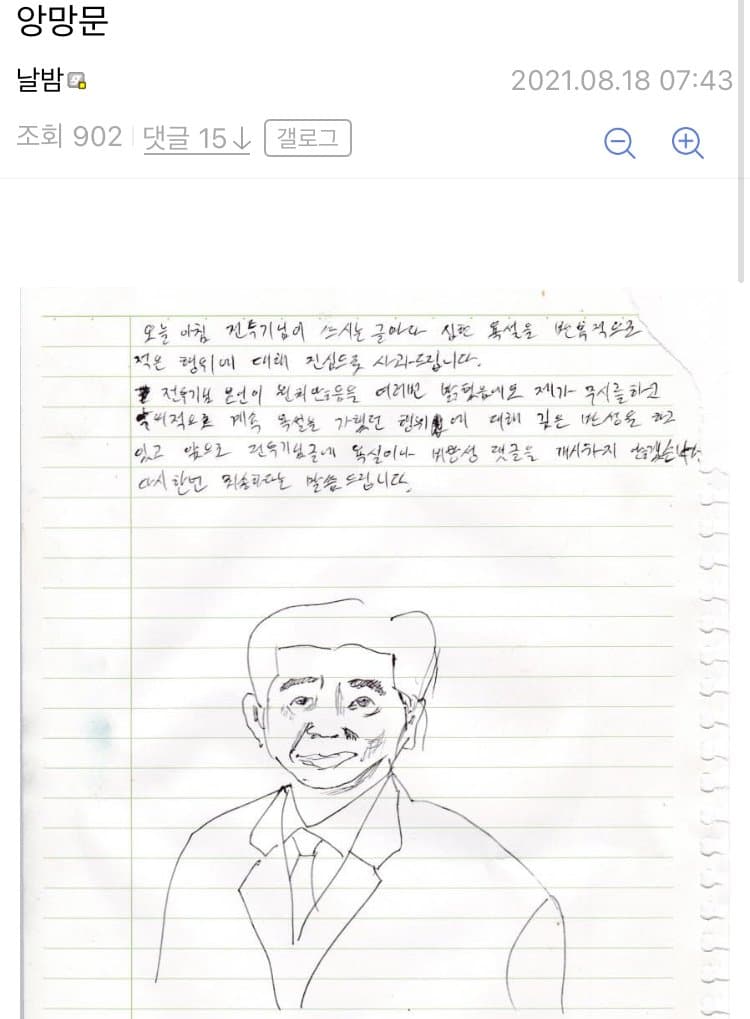 앙망문
날밤
2021.08.18 07:43
조회 902 댓글 15↓ 갤로그
오늘 아침 전투기님이 쓰시는 글마다 심한 욕설을 반복적으로
적은 행위에 대해 진심으로 사과드립니다.
전투기님 본인이 원치않음을 여러번 밝혔음에도 제가 무시를하고
악의적으로 계속 욕설을 가했던 행위에 대해 깊은 반성을 하고
있고 앞으로 전투기님글에 욕설이나 비난성 댓글을 개시하지 않겠습니다.
다시한번 죄송하다는 말씀드립니다.